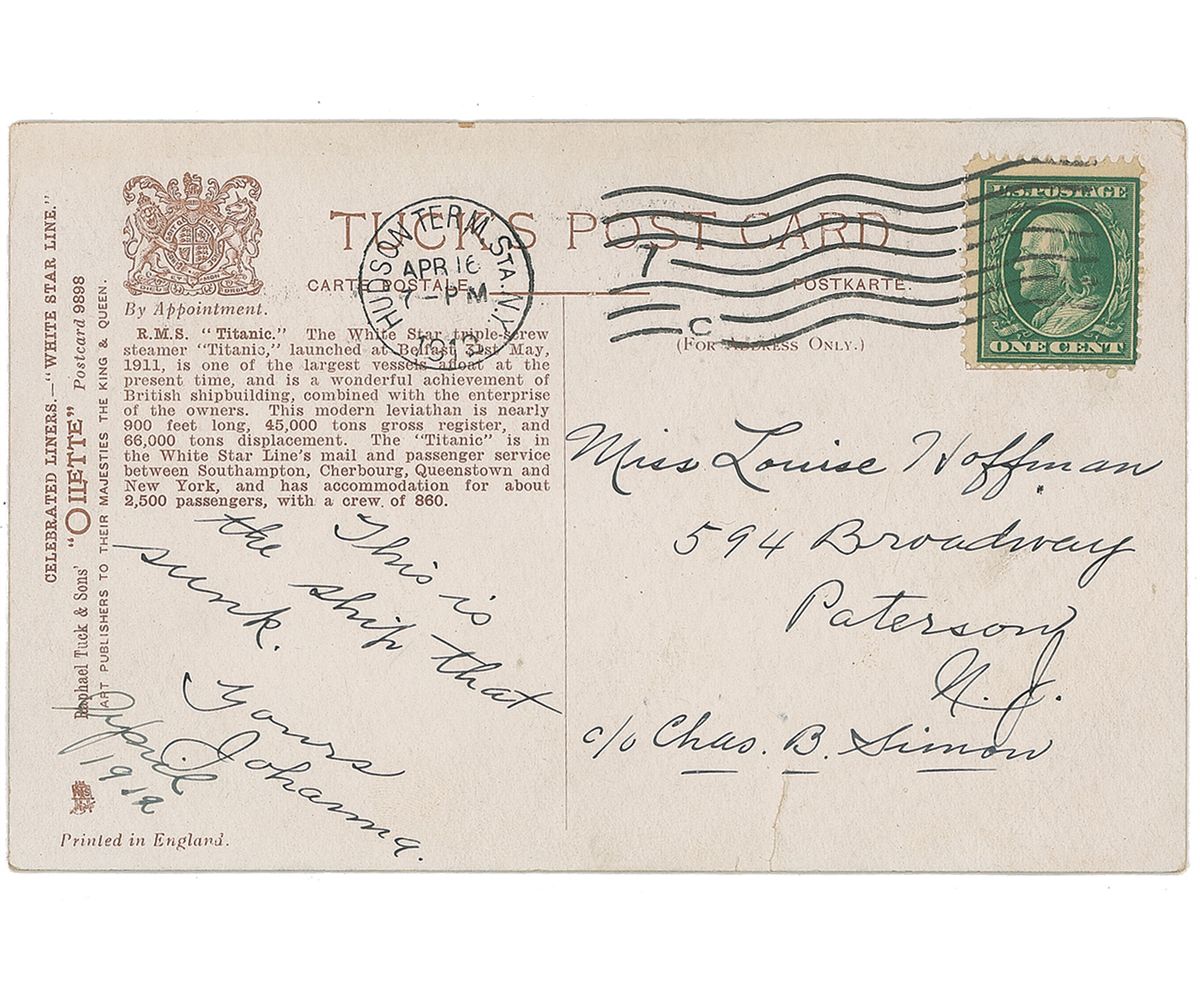 CELEBRATED LINERS.—"WHITE STAR LINE."
Raphael Tuck & Sons' "OILETTE" Postcard 9898
ART PUBLISHERS TO THEIR MAJESTIES THE KING & QUEEN.
By Appointment.
TUCK'S POST CARD
CARTE POSTALE
POSTKARTE.
(FOR ADDRESS ONLY.)
HUDSON TERM. STA. N.Y.
APR 16
7-PM
1912
7
C
U.S. POSTAGE
ONE CENT
R.M.S. "Titanic." The White Star triple-screw
steamer "Titanic," launched at Belfast 31st May,
1911, is one of the largest vessels afloat at the
present time, and is a wonderful achievement of
British shipbuilding, combined with the enterprise
of the owners. This modern leviathan is nearly
900 feet long, 45,000 tons gross register, and
66,000 tons displacement. The "Titanic" is in
the White Star Line's mail and passenger service
between Southampton, Cherbourg, Queenstown and
New York, and has accommodation for about
2,500 passengers, with a crew of 860.
This is
the ship that
sunk.
Yours
Johanna.
April
1912
Printed in England.
Miss Louise Hoffman
594 Broadway
Paterson
N. J.
c/o Chas. B. Simon